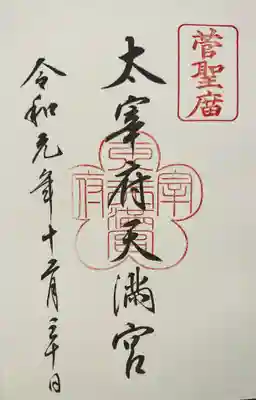 菅聖廟
太宰府天満宮
令和元年十二月三十日